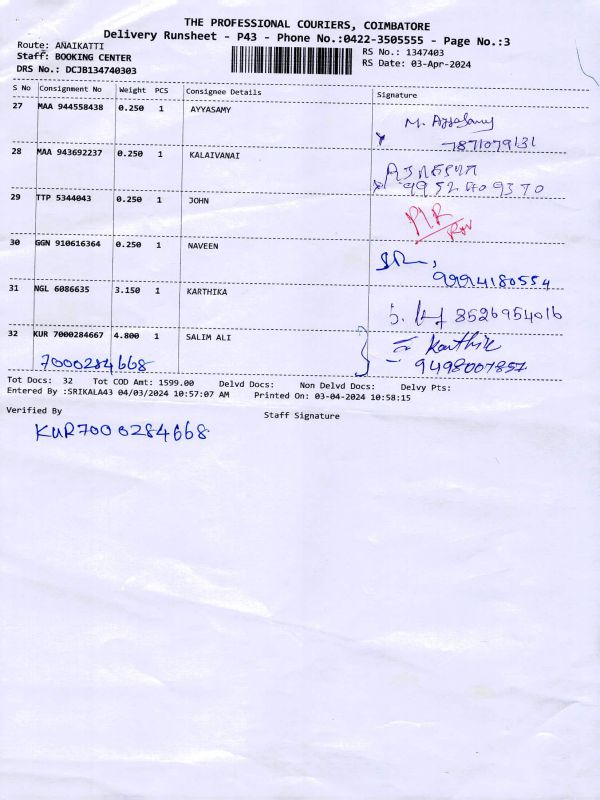 THE PROFESSIONAL COURIERS, COIMBATORE
Delivery Runsheet - P43 - Phone No.:0422-3505555 - Page No.:3
Route: ANAIKATTI RS No.: 1347403
Staff: BOOKING CENTER RS Date: 03-Apr-2024
DRS No.: DCJB134740303
S No Consignment No Weight PCS Consignee Details Signature
27 MAA 944558438 0.250 1 AYYASAMY M. Ayyasamy
7871079131
28 MAA 943692237 0.250 1 KALAIVANAI
9952409370
29 TTP 5344043 0.250 1 JOHN
30 GGN 910616364 0.250 1 NAVEEN
9994180554
31 NGL 6086635 3.150 1 KARTHIKA 8526954016
32 KUR 7000284667 4.800 1 SALIM ALI Karthik
7000284668 9498007857
Tot Docs: 32 Tot COD Amt: 1599.00 Delvd Docs: Non Delvd Docs: Delvy Pts:
Entered By :SRIKALA43 04/03/2024 10:57:07 AM Printed On: 03-04-2024 10:58:15
Verified By Staff Signature
KUR7000284668